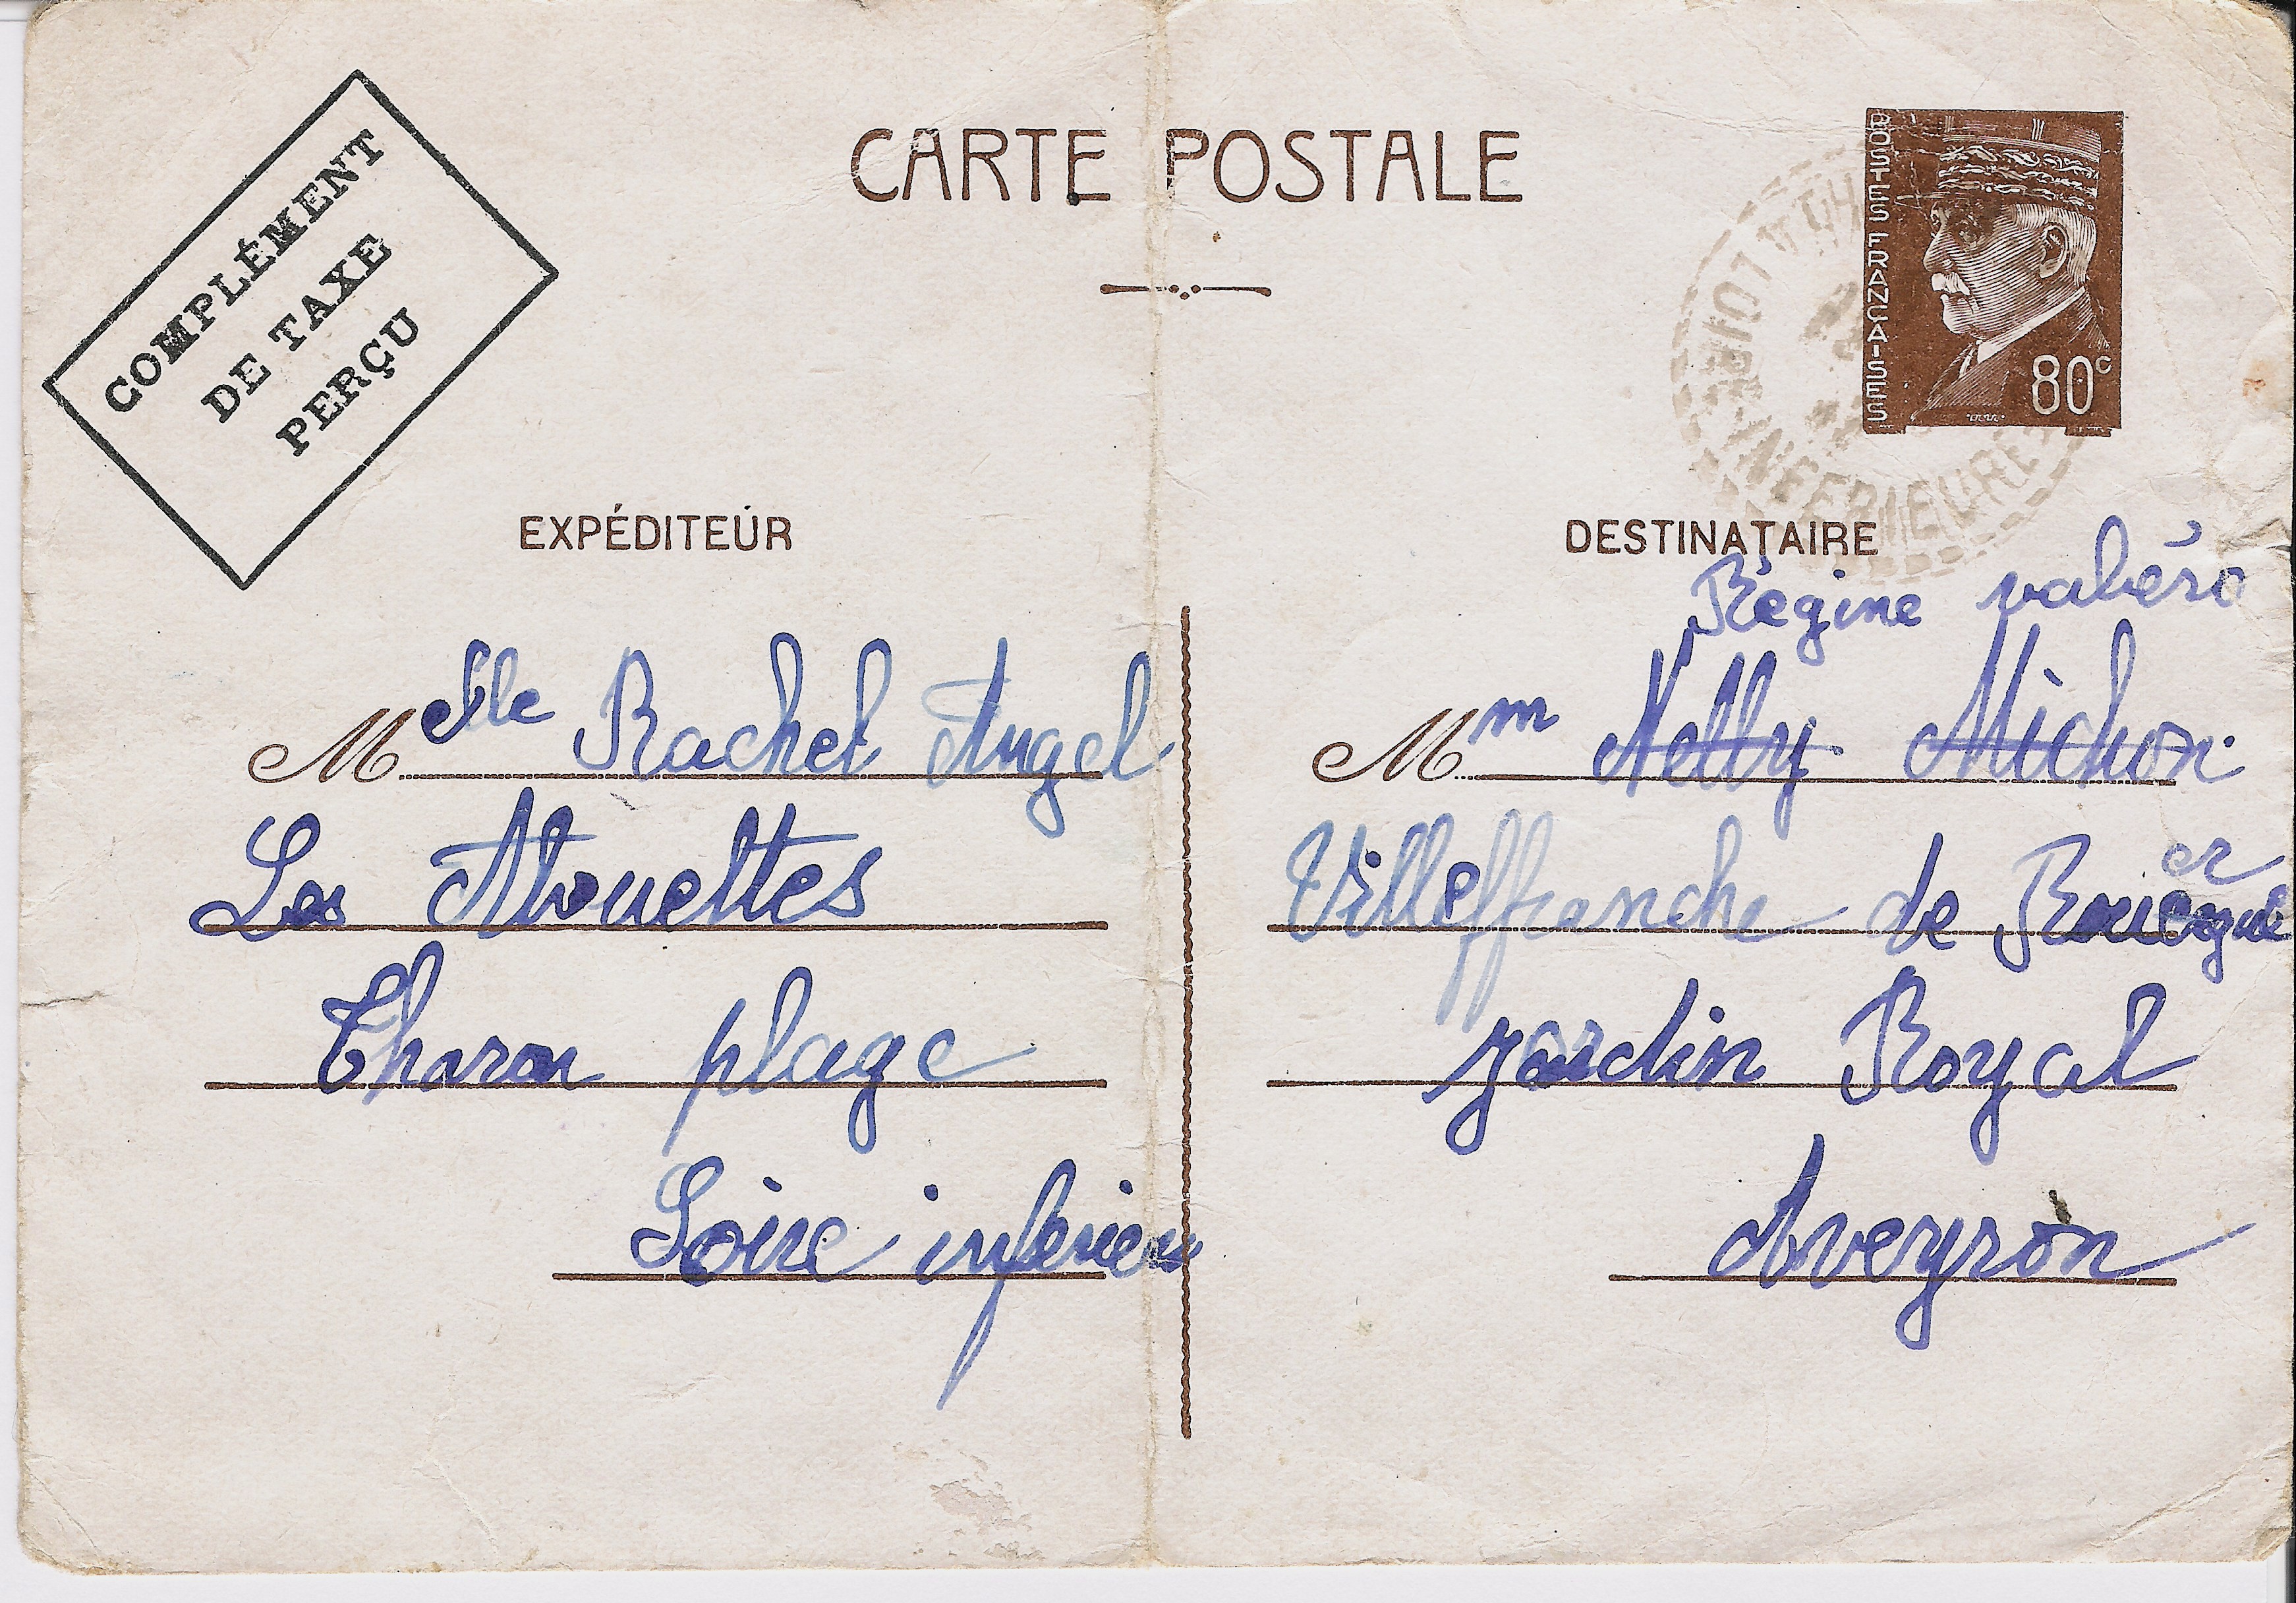 COMPLÉMENT
DE TAXE
PERÇU
CARTE POSTALE
POSTES FRANÇAISES
80c
LOIRE INFERIEURE
EXPÉDITEUR
Melle Rachel Angel
Les Mouettes
Tharon plage
Loire inferieu
DESTINATAIRE
Régine valéro
Mm Nelly Michon
Villeffranche de Rouergue
er
Jardin Royal
Aveyron